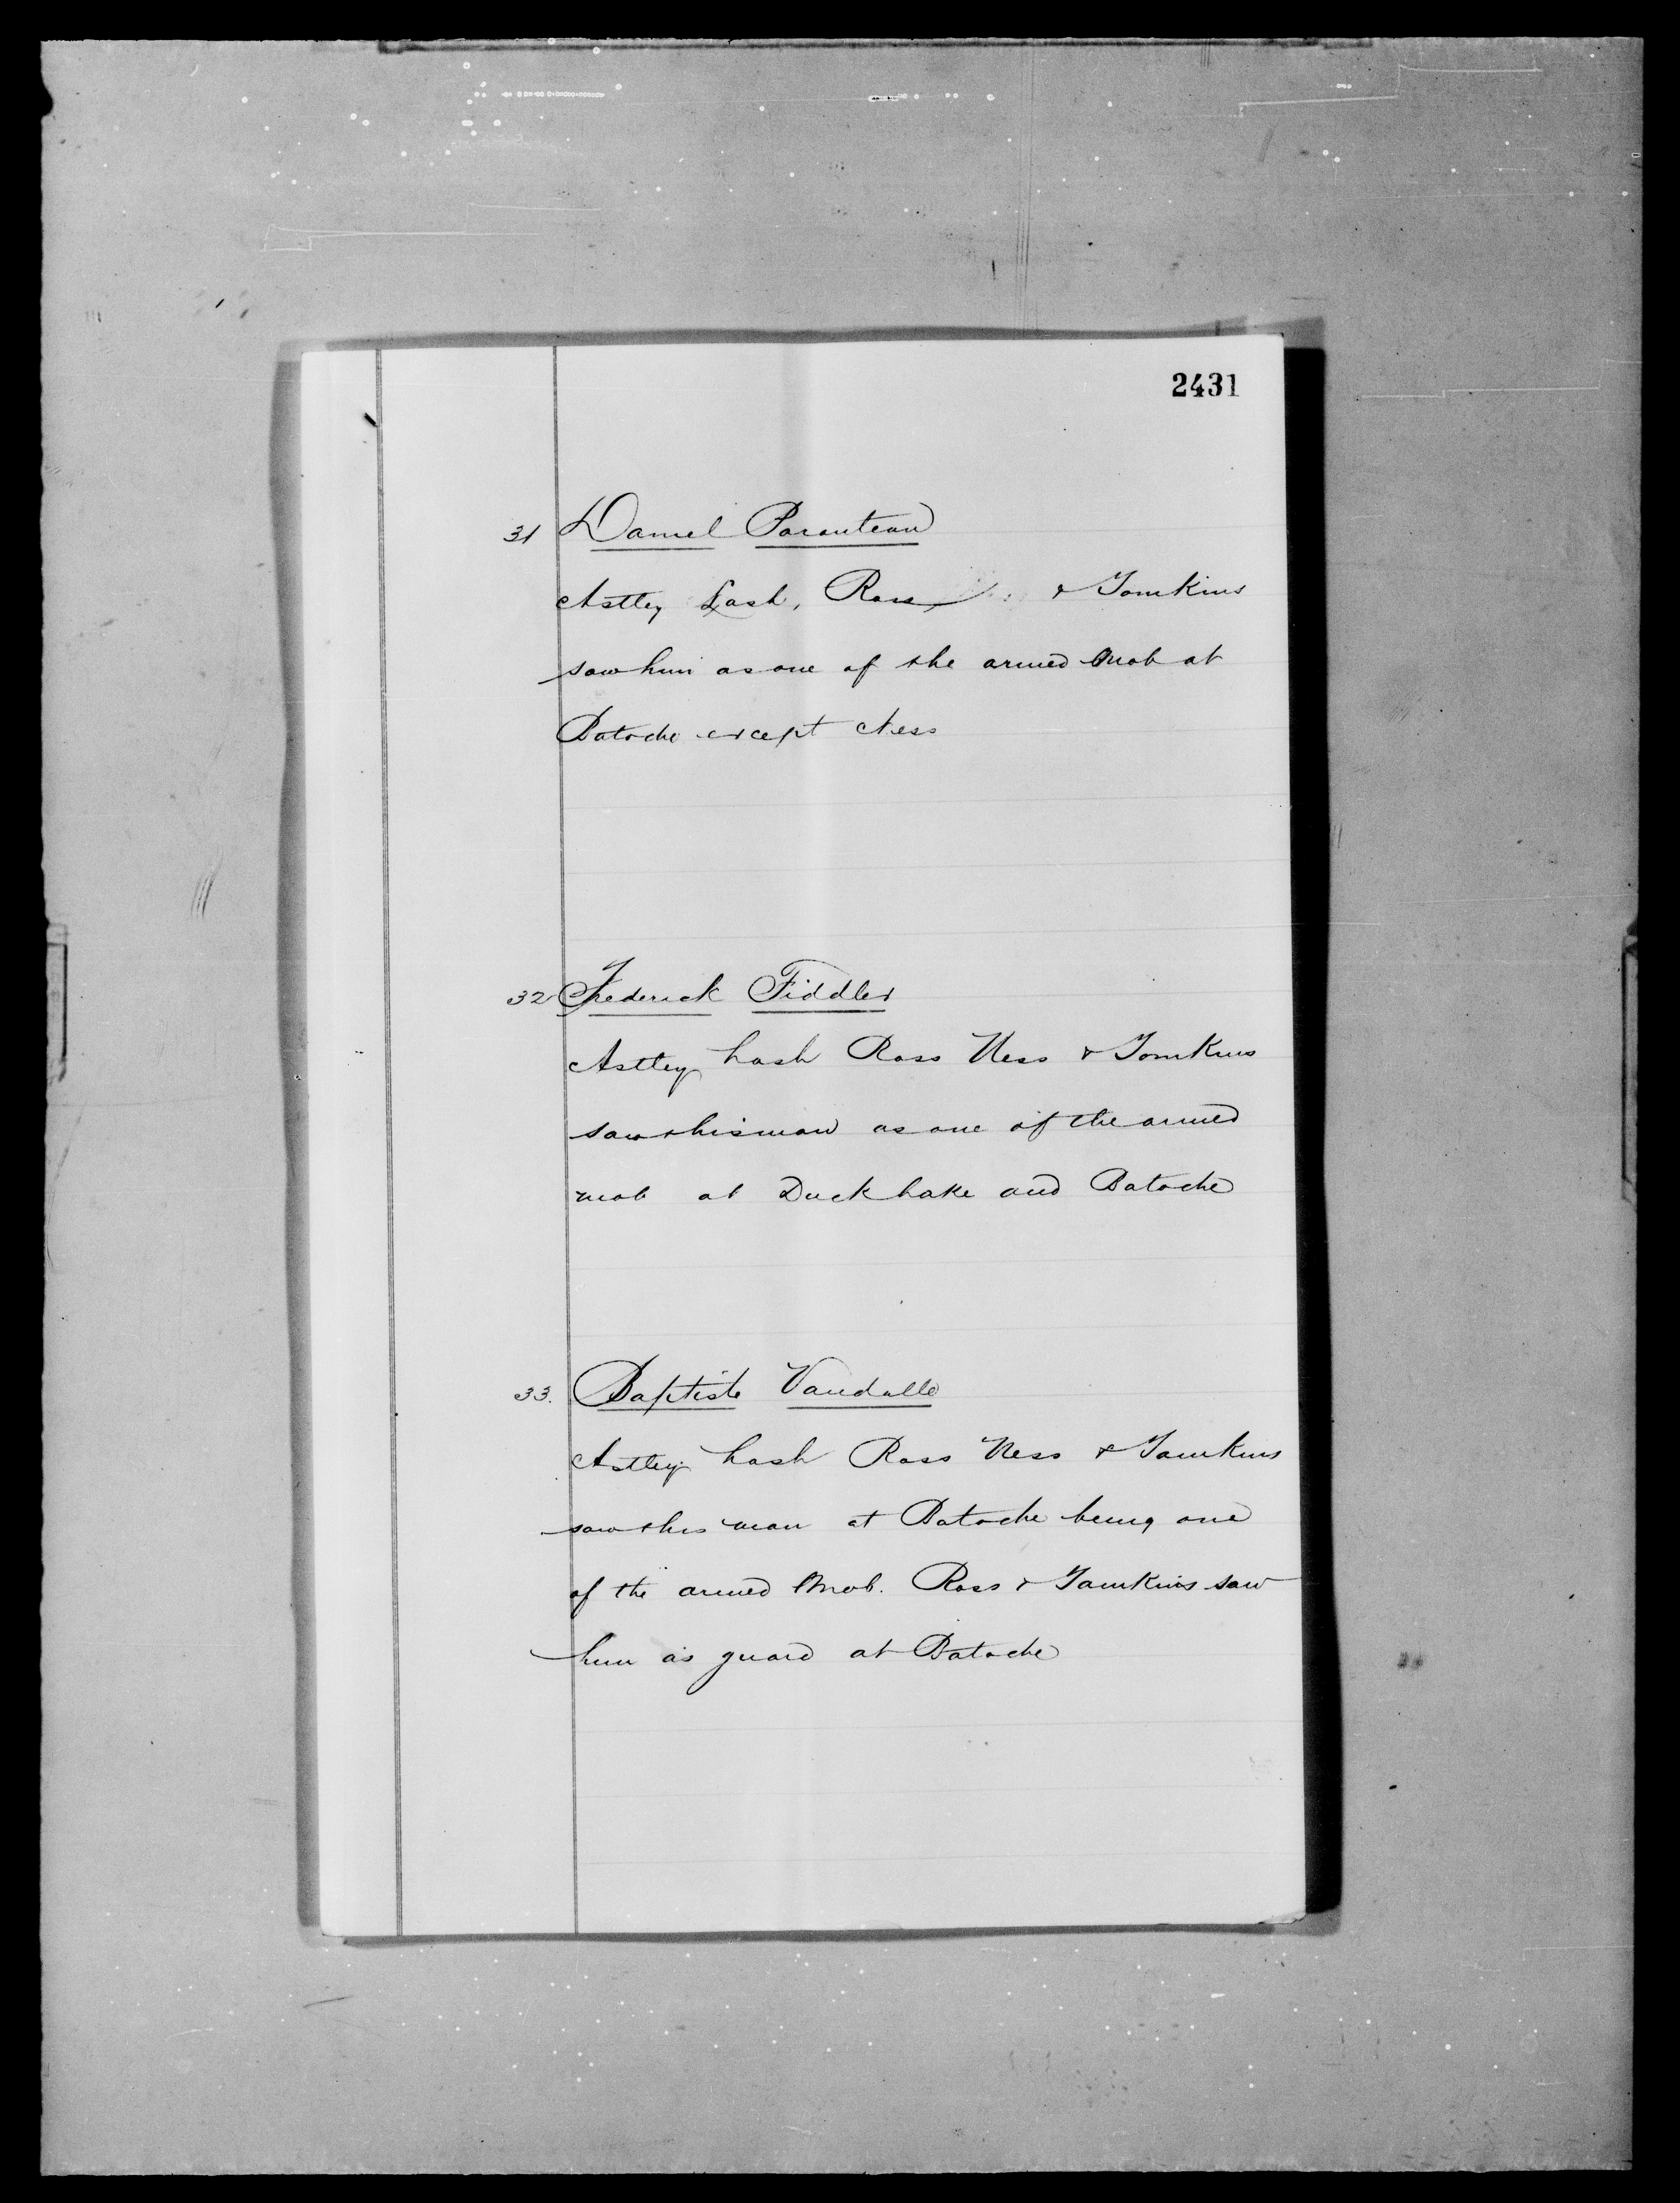 2431
31 Daniel Paranteau
Astley Lash, Ross & Tomkins
saw him as one of the armed mob at
Batoche except Ness
32 Frederick Fiddler
Astley Lash Ross Ness & Tomkins
saw this man as one of the armed
mob at Duck Lake and Batoche
33. Baptiste Vandalle
Astley Lash Ross Ness & Tomkins
saw this man at Batoche being one
of the armed mob. Ross & Tomkins saw
him as guard at Batoche